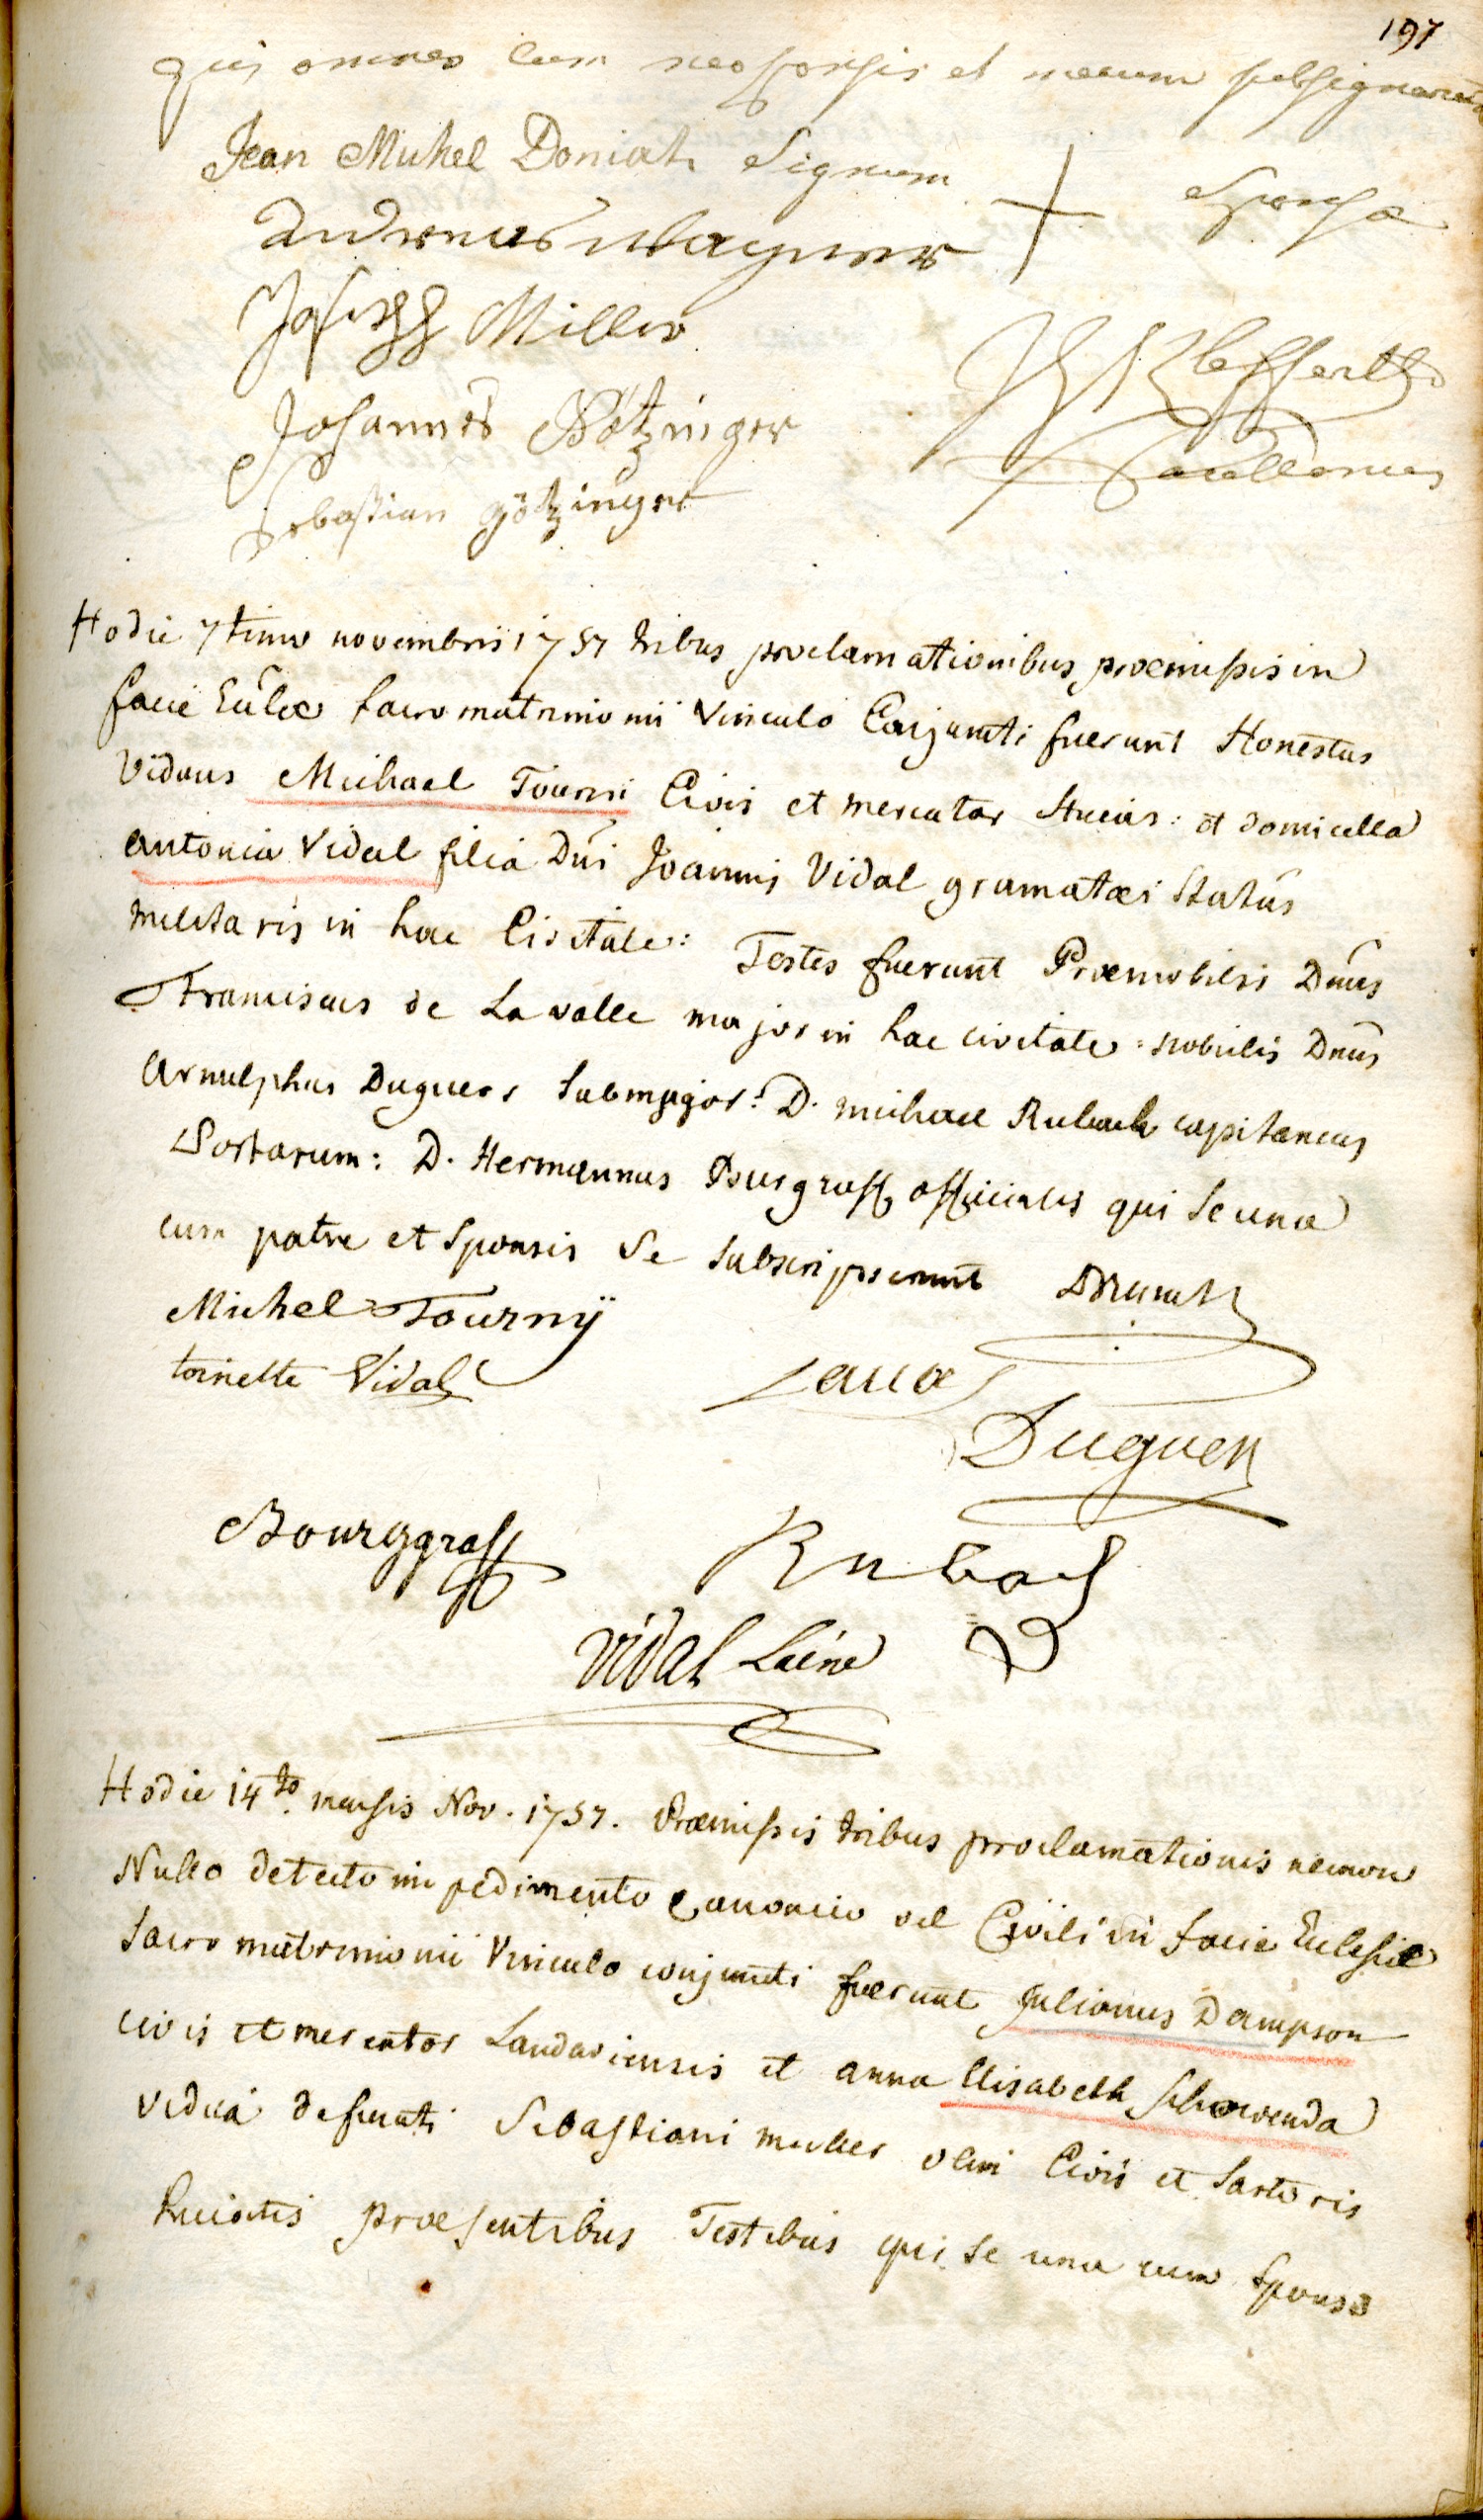 197
qui omnes cum neosponsis et mecum subsignarunt
Jean Michel Doniat Signum + Sponsæ
Andreas Wagner
Joseph Miller
Johannes Götzinger
Sebastian götzinger
Capellanus
Hodie 7timo novembris 1757 tribus proclamationibus præmissis in
facie Eccłæ sacro matrimonii Vinculo Conjuncti fuerunt Honestus
Viduus Michael Tourni Civis et mercator hucias: et domicella
antonia Vidal filia Dni Joannis Vidal gramatæi Status
militaris in hac Civitate: Testes fuerunt Prænobilis Dnus
Franciscus de Lavalle major in hac civitate: nobilis Dnus
Arnulphus Duguers submajor: D. michael Rubach capitaneus
Portarum: D. Hermannus Burgraff officialis qui se una
cum patre et Sponsis Se subscripserunt
Michel Tournÿ
toinette Vidal
Duguen
Bourggraff
Rubach
Vidal Laine
Hodie 14to. mensis Nov. 1757. Præmissis tribus proclamationis necnon
Nullo detecto impedimento Canonico vel Civili in facie Eclesiæ
Sacro matrimonii Vinculo conjuncti fuerunt Julianus Dampson
civis et mercator Landaviensis et anna Elisabeth Schowenda
vidua defuncti Sebastiani muller olim Civis et Sartoris
huiatis præsentibus Testibus qui se una cum Sponsis